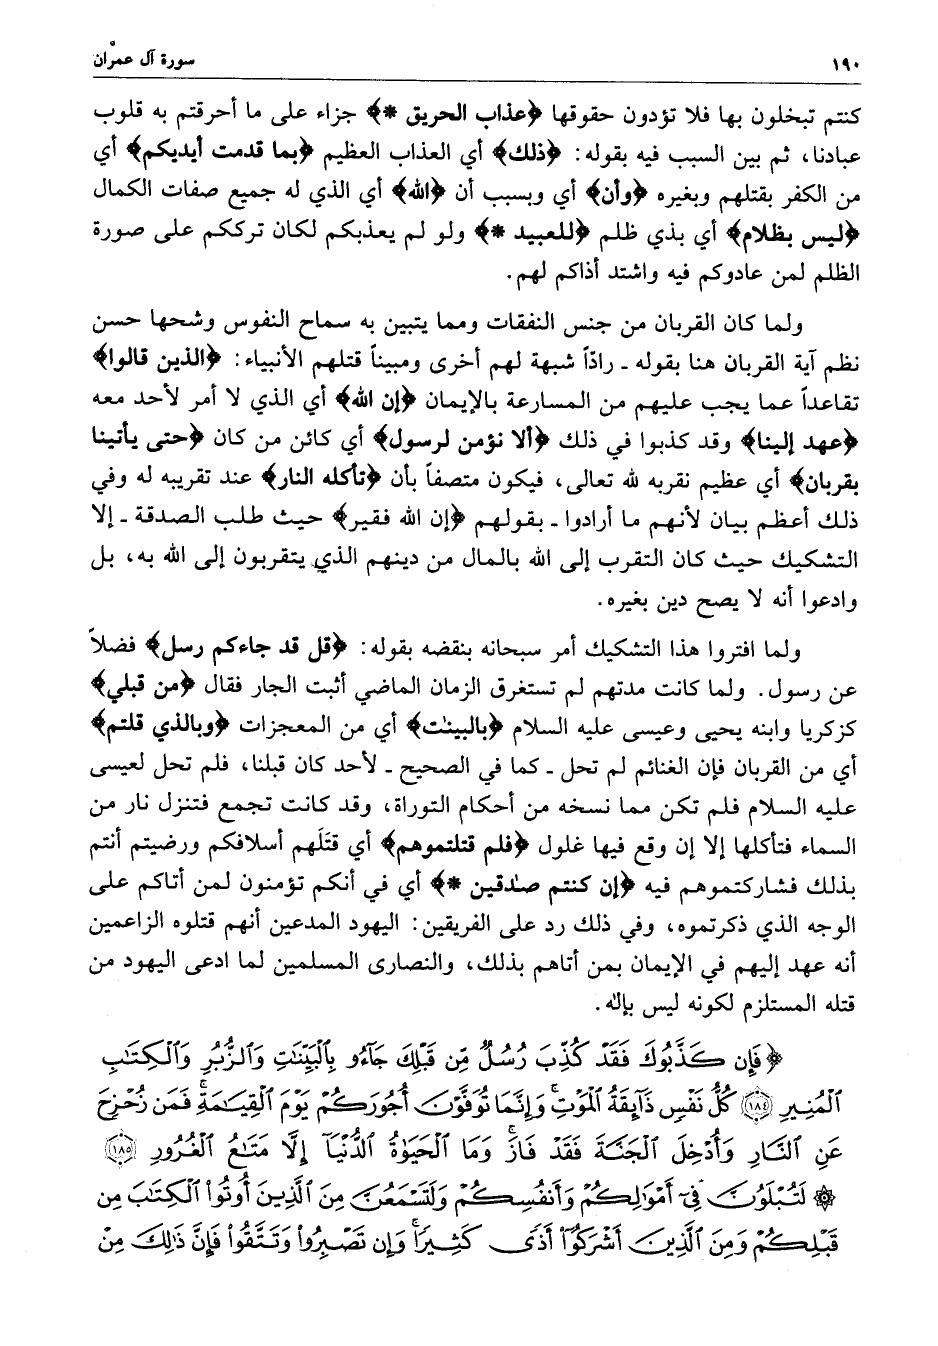 ١٩٠ سورة آل عمرٰن
كنتم تبخلون بها فلا تؤدون حقوقها ﴿عذاب الحريق *﴾ جزاء على ما أحرقتم به قلوب
عبادنا، ثم بين السبب فيه بقوله: ﴿ذلك﴾ أي العذاب العظيم ﴿بما قدمت أيديكم﴾ أي
من الكفر بقتلهم وبغيره ﴿وأن﴾ أي وبسبب أن ﴿الله﴾ أي الذي له جميع صفات الكمال
﴿ليس بظلام﴾ أي بذي ظلم ﴿للعبيد *﴾ ولو لم يعذبكم لكان ترككم على صورة
الظلم لمن عادوكم فيه واشتد أذاكم لهم.
ولما كان القربان من جنس النفقات ومما يتبين به سماح النفوس وشحها حسن
نظم آية القربان هنا بقوله ـ راداً شبهة لهم أخرى ومبيناً قتلهم الأنبياء: ﴿الذين قالوا﴾
تقاعداً عما يجب عليهم من المسارعة بالإيمان ﴿إن الله﴾ أي الذي لا أمر لأحد معه
﴿عهد إلينا﴾ وقد كذبوا في ذلك ﴿ألا نؤمن لرسول﴾ أي كائن من كان ﴿حتى يأتينا
بقربان﴾ أي عظيم نقربه لله تعالى، فيكون متصفاً بأن ﴿تأكله النار﴾ عند تقريبه له وفي
ذلك أعظم بيان لأنهم ما أرادوا ـ بقولهم ﴿إن الله فقير﴾ حيث طلب الصدقة ـ إلا
التشكيك حيث كان التقرب إلى الله بالمال من دينهم الذي يتقربون إلى الله به، بل
وادعوا أنه لا يصح دين بغيره.
ولما افتروا هذا التشكيك أمر سبحانه بنقضه بقوله: ﴿قل قد جاءكم رسل﴾ فضلاً
عن رسول. ولما كانت مدتهم لم تستغرق الزمان الماضي أثبت الجار فقال ﴿من قبلي﴾
كزكريا وابنه يحيى وعيسى عليه السلام ﴿بالبينٰت﴾ أي من المعجزات ﴿وبالذي قلتم﴾
أي من القربان فإن الغنائم لم تحل ـ كما في الصحيح ـ لأحد كان قبلنا، فلم تحل لعيسى
عليه السلام فلم تكن مما نسخه من أحكام التوراة، وقد كانت تجمع فتنزل نار من
السماء فتأكلها إلا إن وقع فيها غلول ﴿فلم قتلتموهم﴾ أي قتَلَهم أسلافكم ورضيتم أنتم
بذلك فشاركتموهم فيه ﴿إن كنتم صٰدقين *﴾ أي في أنكم تؤمنون لمن أتاكم على
الوجه الذي ذكرتموه، وفي ذلك رد على الفريقين: اليهود المدعين أنهم قتلوه الزاعمين
أنه عهد إليهم في الإيمان بمن أتاهم بذلك، والنصارى المسلمين لما ادعى اليهود من
قتله المستلزم لكونه ليس بإلٰه.
﴿فَإِن كَذَّبُوكَ فَقَدْ كُذِّبَ رُسُلٌ مِّن قَبْلِكَ جَآءُو بِٱلْبَيِّنَٰتِ وَٱلزُّبُرِ وَٱلْكِتَٰبِ
ٱلْمُنِيرِ ١٨٤ كُلُّ نَفْسٍ ذَآئِقَةُ ٱلْمَوْتِ ۗ وَإِنَّمَا تُوَفَّوْنَ أُجُورَكُمْ يَوْمَ ٱلْقِيَٰمَةِ ۖ فَمَن زُحْزِحَ
عَنِ ٱلنَّارِ وَأُدْخِلَ ٱلْجَنَّةَ فَقَدْ فَازَ ۗ وَمَا ٱلْحَيَوٰةُ ٱلدُّنْيَآ إِلَّا مَتَٰعُ ٱلْغُرُورِ ١٨٥
۞ لَتُبْلَوُنَّ فِىٓ أَمْوَٰلِكُمْ وَأَنفُسِكُمْ وَلَتَسْمَعُنَّ مِنَ ٱلَّذِينَ أُوتُوا۟ ٱلْكِتَٰبَ مِن
قَبْلِكُمْ وَمِنَ ٱلَّذِينَ أَشْرَكُوٓا۟ أَذًى كَثِيرًا ۚ وَإِن تَصْبِرُوا۟ وَتَتَّقُوا۟ فَإِنَّ ذَٰلِكَ مِنْ